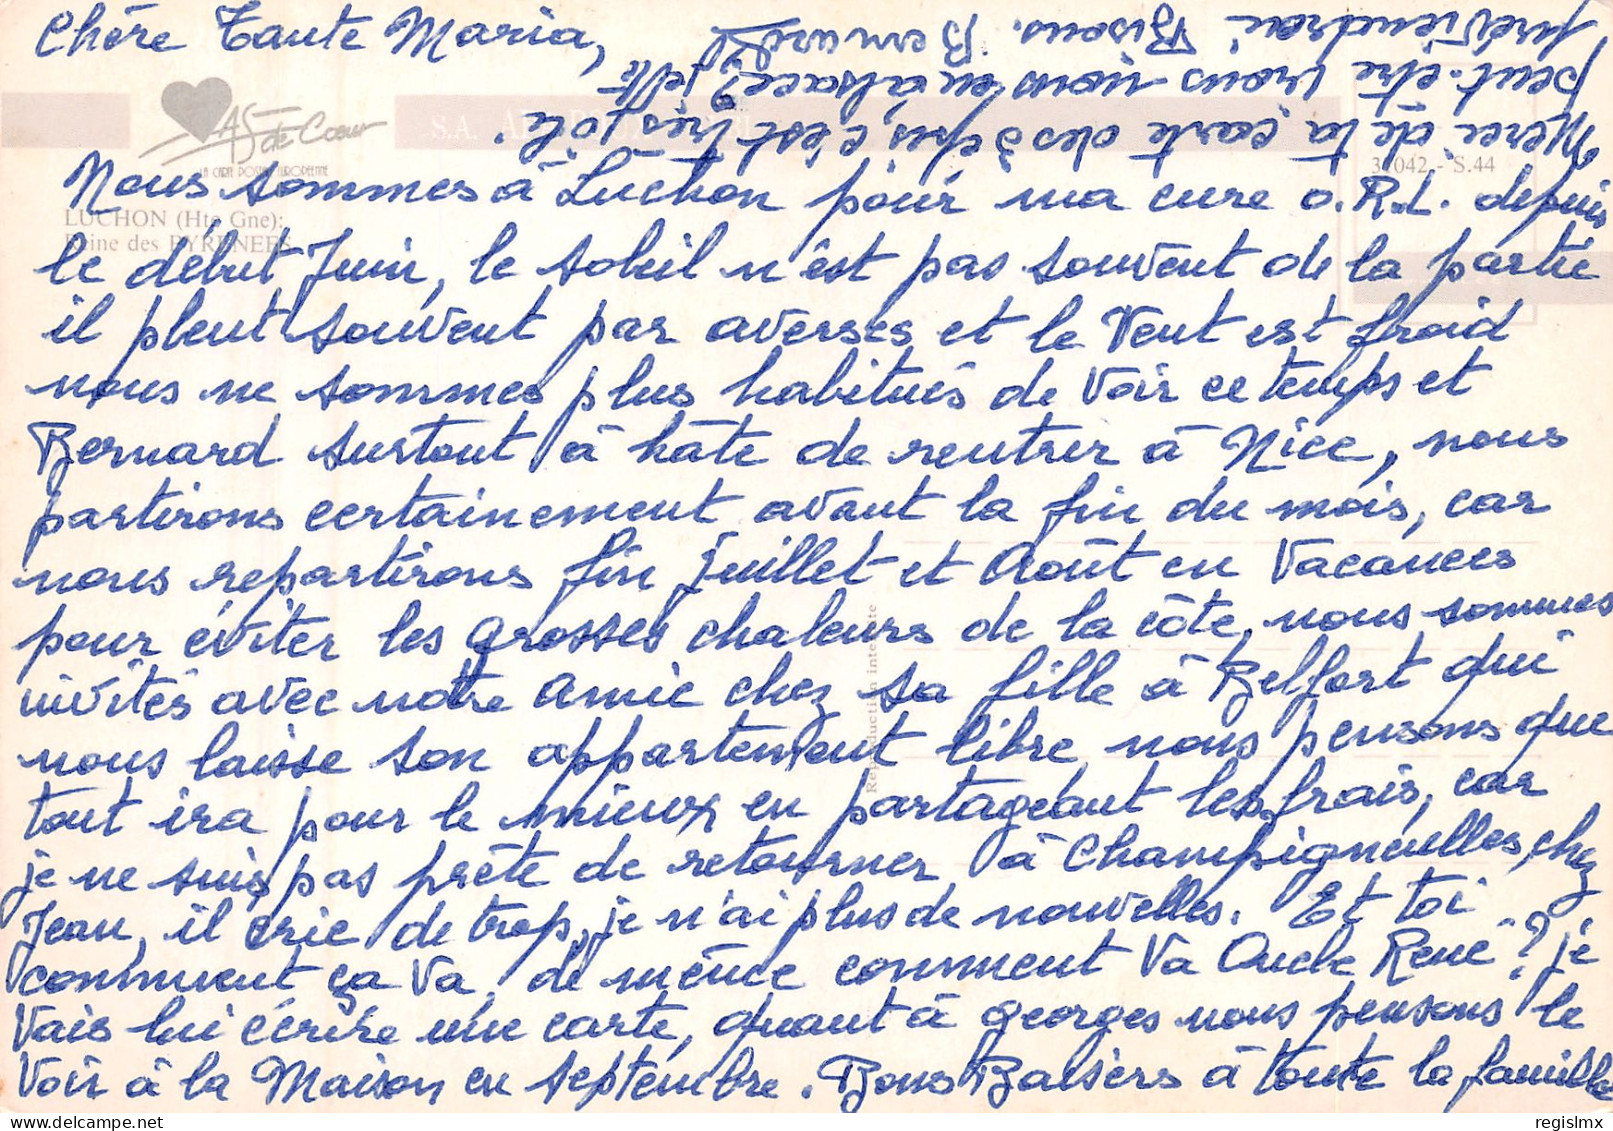 Chère Tante Maria,
AS de Cœur
LA CARTE POSTALE EUROPÉENNE
S.A.
31042 - S.44
LUCHON (Hte Gne):
Reine des PYRENEES
Nous sommes à Luchon pour ma cure O.R.L. depuis
le début Juin, le soleil n'est pas souvent de la partie
il pleut souvent par averses et le Vent est froid
nous ne sommes plus habitués de Voir ce temps et
Bernard surtout à hâte de rentrer à Nice, nous
partirons certainement avant la fin du mois, car
nous repartirons fin juillet et Août en Vacances
pour éviter les grosses chaleurs de la côte, nous sommes
invités avec notre amie chez sa fille à Belfort qui
nous laisse son appartement libre, nous pensons que
tout ira pour le mieux en partageant les frais, car
je ne suis pas prête de retourner à Champigneulles, chez
Jean, il crie de trop, je n'ai plus de nouvelles. Et toi
comment ça Va, de même comment Va Oncle René"? je
Vais lui écrire une carte, quant à georges nous pensons le
Voir à la Maison en septembre. Bons Baisers à toute la famille
Merci de ta carte des, c'est très jolie.
peut-être irons nous en alsace? je te
préviendrai. Bisous. Bernard
Reproduction interdite
regislmx